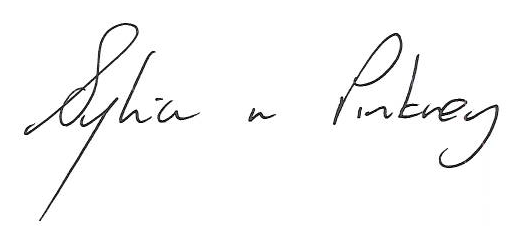 Sylvia n Pinkney